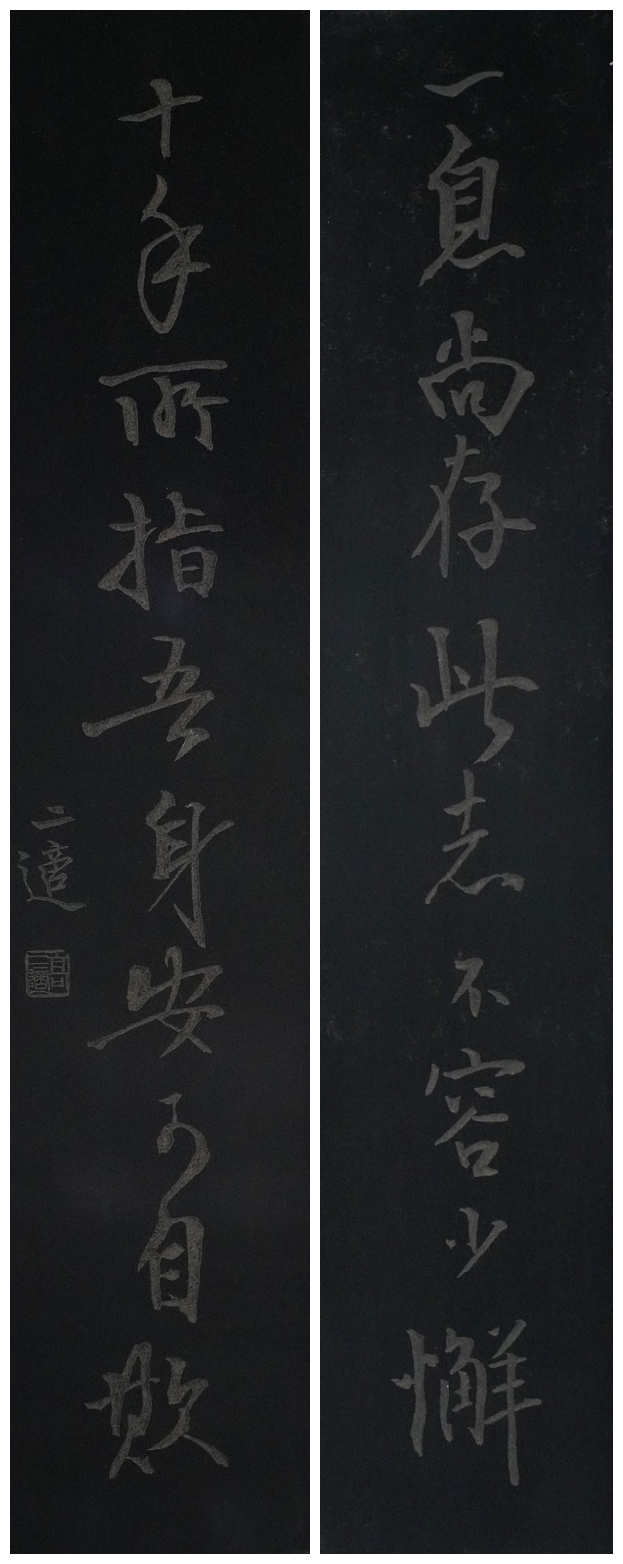 一息尚存此志不容少懈
十手所指吾身安可自欺
二適